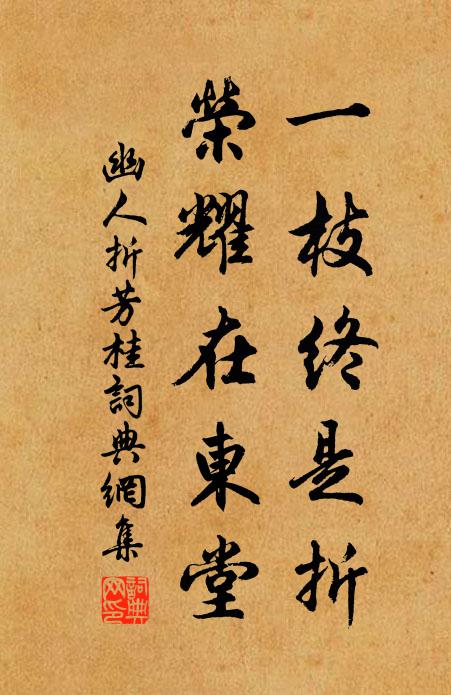 一枝終是折
榮耀在東堂
幽人折芳桂詞典網集
詞典
网印